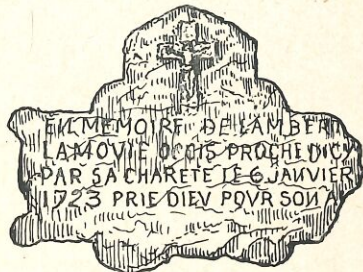 EN MEMOIRE DE LAMBERT
LAMOVLE OCCIS PROCHE DICY
PAR SA CHARETE LE 6 JANVIER
1723 PRIE DIEV POVR SON A